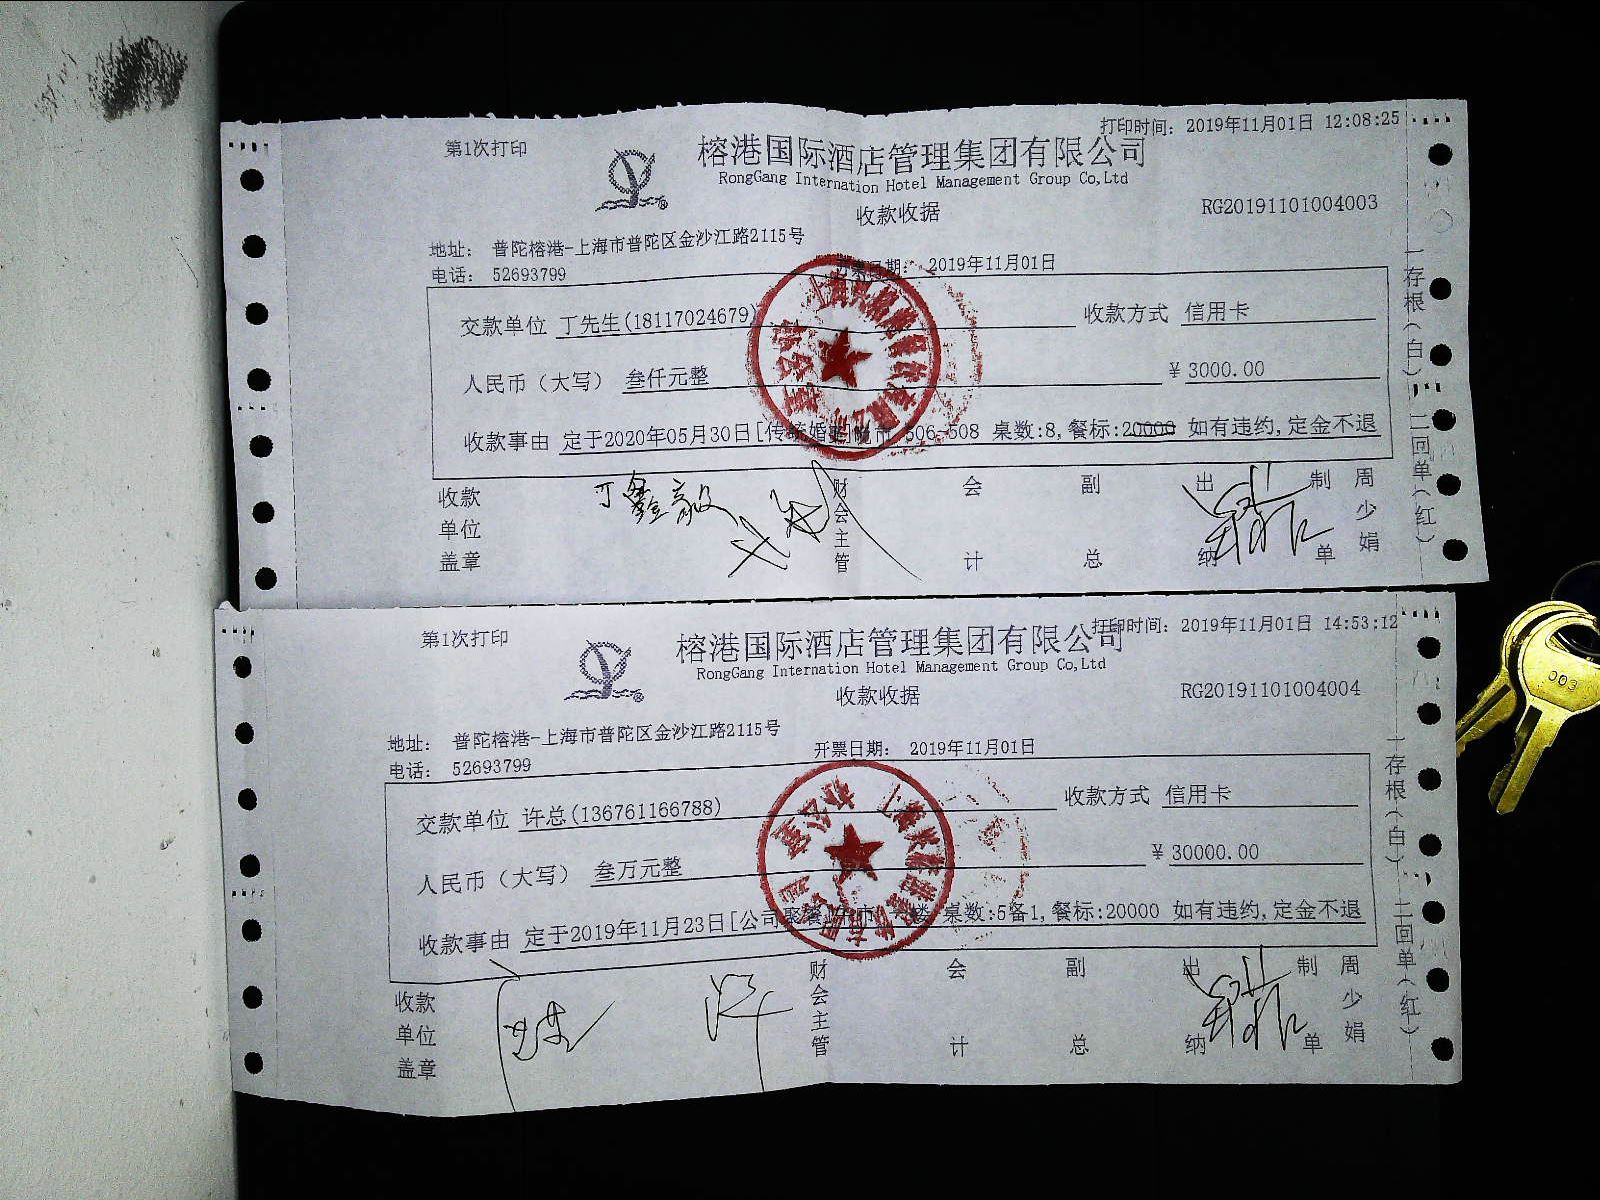 第1次打印
打印时间: 2019年11月01日 12:08:25
榕港国际酒店管理集团有限公司
RongGang Internation Hotel Management Group Co,Ltd
收款收据
RG20191101004003
地址: 普陀榕港-上海市普陀区金沙江路2115号
电话: 52693799
开票日期: 2019年11月01日
交款单位 丁先生(18117024679)
收款方式 信用卡
人民币（大写） 叁仟元整
¥ 3000.00
收款事由 定于2020年05月30日[传统婚宴 晚市 506-508 桌数:8,餐标:20000 如有违约,定金不退
收款单位盖章
丁鑫毅
财会主管
会计
副总
出纳
制单
周少娟
一存根(白) 二回单(红)
第1次打印
打印时间: 2019年11月01日 14:53:12
榕港国际酒店管理集团有限公司
RongGang Internation Hotel Management Group Co,Ltd
收款收据
RG20191101004004
地址: 普陀榕港-上海市普陀区金沙江路2115号
电话: 52693799
开票日期: 2019年11月01日
交款单位 许总(136761166788)
收款方式 信用卡
人民币（大写） 叁万元整
¥ 30000.00
收款事由 定于2019年11月23日[公司聚餐 市 楼 桌数:5备1,餐标:20000 如有违约,定金不退
收款单位盖章
财会主管
会计
副总
出纳
制单
周少娟
一存根(白) 二回单(红)
003